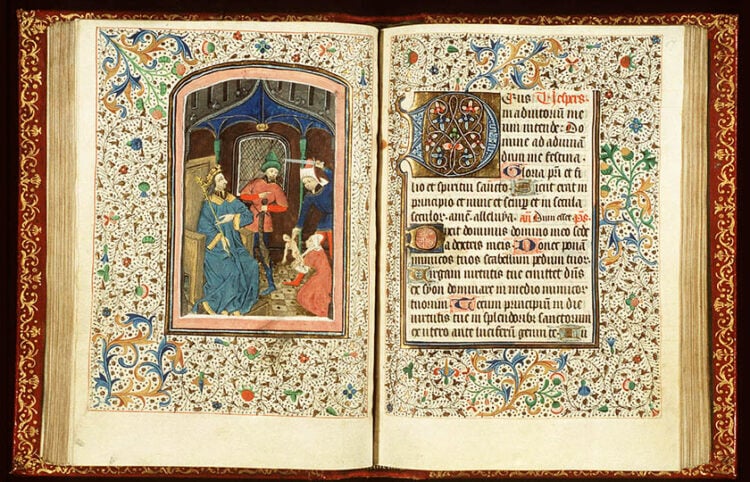 Deus Ad Vesperas.
in adiutoriũ me
um intende. Do
mine ad adiuuã
dum me festina.
Gloria pñi et fi
lio et spiritui sancto Sicut erat in
principio et nunc et semper et in secula
seculor. amẽ. alleluya. añ Dum esset Ps
Dixit dominus domino meo sede
a dextris meis. Donec ponã
inimicos tuos scabellũ pedum tuor.
Virgam uirtutis tue emittet dñs
ex syon dominare in medio inimicor
tuorum Tecum principiũ in die
uirtutis tue in splendorib sanctorum
ex utero ante luciferũ genui te